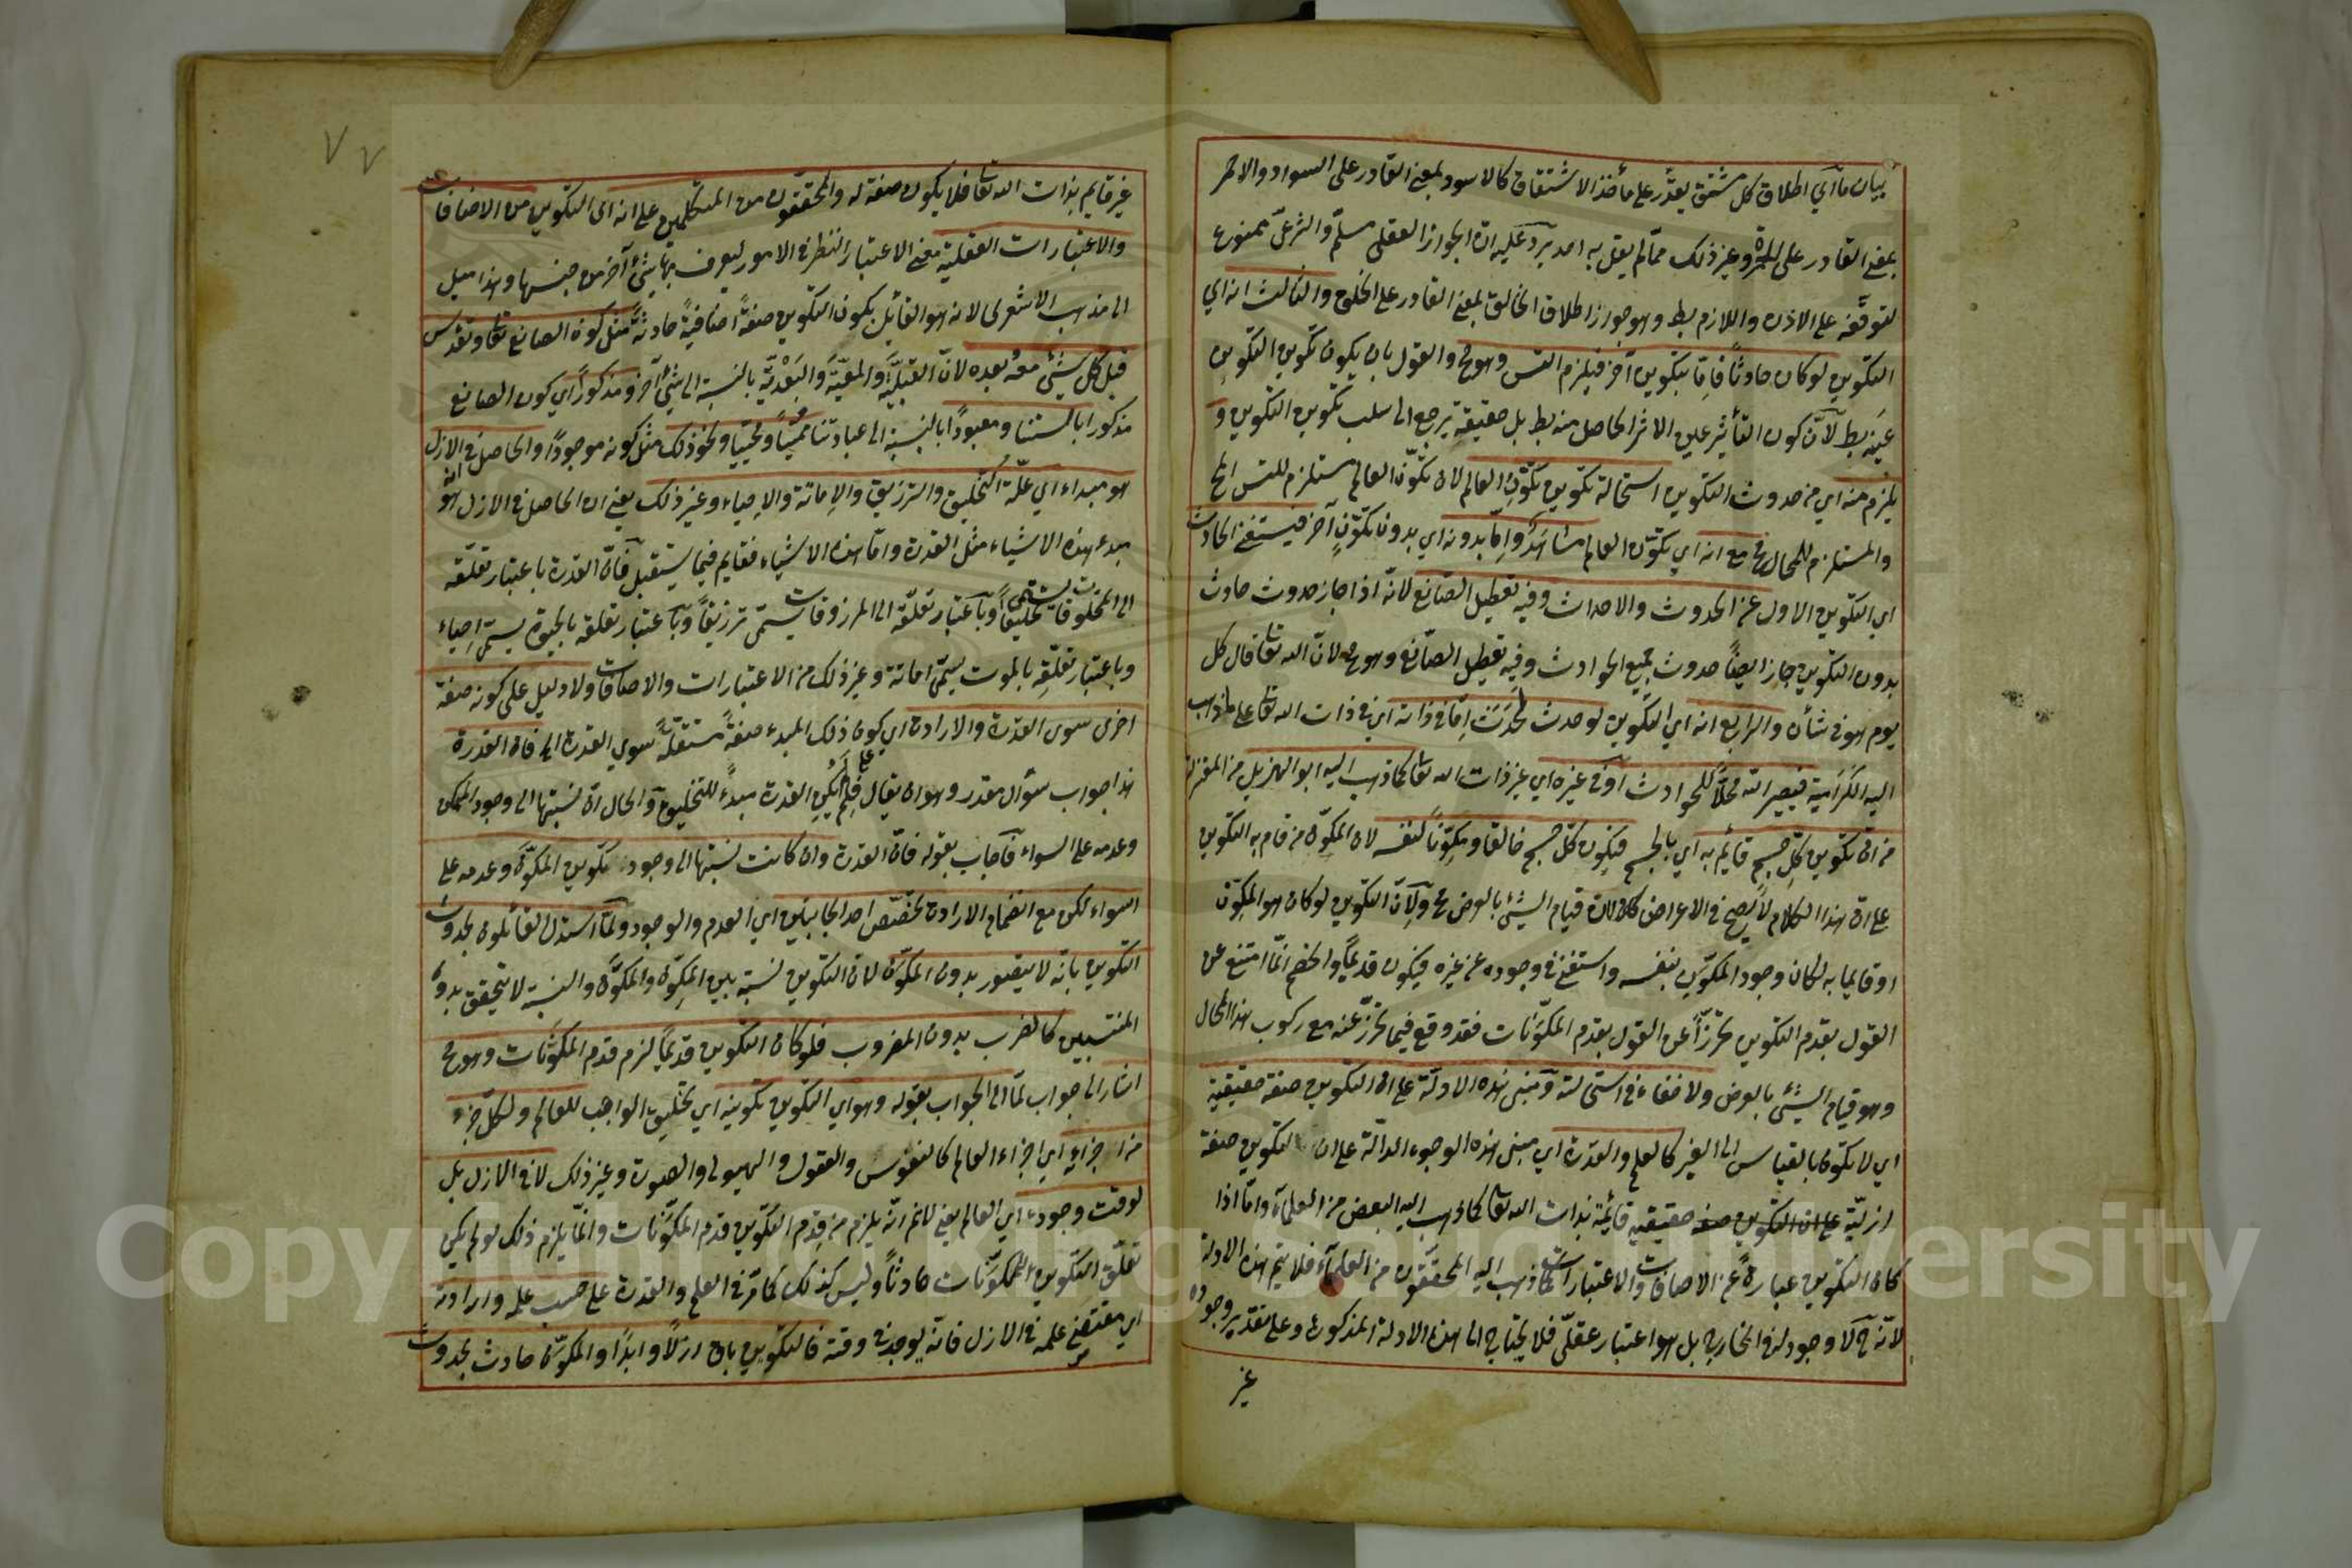 بيان ما اي اطلاق كل مشتق يقدر على مأخذ الاشتقاق كالاسود بمعنى القادر على السواد والاحمر
بمعنى القادر على الحمرة وغير ذلك مما لم يقل به احد يرد عليه ان الجواز العقلي مسلم والشرعي ممنوع
لتوقفه على الاذن واللازم بط وهو جواز اطلاق الخالق بمعنى القادر على الخلق والثالث انه اي
التكوين لو كان حادثاً فاما بتكوين آخر فيلزم التس وهو مح والقول بان يكون تكوين التكوين
عينه بط لأن كون التأثير عين الاثر الحاصل منه بط بل حقيقة يرجع الى سلب تكوين التكوين و
يلزم منه اي من حدوث التكوين استحالة تكوين تكون العالم لان تكون العالم مستلزم للتس المح
والمستلزم للمحال مح مع انه اي تكون العالم مشاهد واما بدونه اي بدون تكون آخر فيستغني الحادث
اي التكوين الاول عن الحدوث والاحداث وفيه تعطيل الصانع لانه اذا جاز حدوث حادث
بدون التكوين جاز ايضاً حدوث جميع الحوادث وفيه تعطيل الصانع وهو مح لان الله تعا قال كل
يوم هو في شأن والرابع انه اي التكوين لو حدث لحدث اما في ذاته اي في ذات الله تعا على ما ذهب
اليه الكرامية فيصير الله محلاً للحوادث او في غيره اي غير ذات الله تعا كما ذهب اليه ابو الهزيل من المعتزلة
من ان تكوين كل جسم قائم به اي بالجسم فيكون كل جسم خالقا ومكوناً لنفسه لان المكون من قام به التكوين
على ان هذا الكلام لا يصح في الاعراض لان قيام الشئ بالعرض مح ولأن التكوين لو كان هو المكون
او قايما به لكان وجود المكون بنفسه واستغنى في وجوده عن غيره فيكون قديماً والخصم انما امتنع عن
القول بقدم التكوين تحرزاً عن القول بقدم المكونات فقد وقع فيما تحرز عنه مع ركوب هذا المحال
وهو قيام الشئ بالعرض ولا خفاء في استحالته ومبنى هذه الادلة على ان التكوين صفة حقيقية
اي لا يكون بالقياس الى الغير كالعلم والقدرة اي مبنى هذه الوجوه الدالة على ان التكوين صفة
ازلية على ان التكوين صفة حقيقية قائمة بذات الله تعا كما ذهب اليه البعض من العلماء واما اذا
كان التكوين عبارة عن الاضافات والاعتبارات كما ذهب اليه المحققون من العلماء فلا يتم هذه الادلة
لانه ح لا وجود له في الخارج بل هو اعتبار عقلي فلا يحتاج الى هذه الادلة المذكورة وعلى تقدير وجوده
غير
غير قايم بذات الله تعا فلا يكون صفة له والمحققون من المتكلمين على انه اى التكوين من الاضافات
والاعتبارات العقلية معنى الاعتبار النظر في الامور ليعرف بها شئ آخر من جنسها وهذا ميل
الى مذهب الاشعرى لانه هو القائل بكون التكوين صفة اضافية حادثة مثل كونه الصانع تعا وتقدس
قبل كل شئ معه بعده لان القبلية والمعية والبعدية بالنسبة الى شئ آخر ومذكوراً اي كون الصانع
مذكورا بالسنتنا ومعبوداً بالنسبة الى عبادتنا مميتاً ومحييا ونحو ذلك مثل كونه موجوداً والحاصل في الازل
هو مبداء اي علة التخليق والترزيق والاماتة والاحياء وغير ذلك يعني ان الحاصل في الازل انه هو
مبدء هذه الاشياء مثل القدرة واما هذه الاشياء فقايم فيما يستقبل فان القدرة باعتبار تعلقه
الى المخلوقات يسمى تخليقاً وباعتبار تعلقه الى المرزوقات يسمى ترزيقاً وباعتبار تعلقه بالحيوة يسمى احياء
وباعتبار تعلقه بالموت يسمى اماتة وغير ذلك من الاعتبارات والاضافات ولا دليل على كونه صفة
اخرى سوى القدرة والارادة اي كون ذلك المبدء صفة مستقلة سوي القدرة الى فان القدرة
هذا جواب سؤال مقدر وهو ان يقال فلم لم يكن القدرة مبدءً للتخليق والحال ان نسبتها الى وجود الممكن
وعدمه على السواء فاجاب بقوله فان القدرة وان كانت نسبتها الى وجود تكوين المكون وعدمه على
السواء لكن مع انضمام الارادة تخصص احد الجانبين اي العدم والوجود ولما استدل القائلون بحدوث
التكوين بانه لا يتصور بدون المكون لان التكوين نسبة بين المكون والمكون والنسبة لا يتحقق بدون
المنتسبين كالضرب بدون المضروب فلو كان التكوين قديماً لزم قدم المكونات وهو مح
اشار الى جواب لما الى الجواب بقوله وهو اي التكوين تكوينه اي تخليق الواجب للعالم ولكل جزء
من اجزائه اي اجزاء العالم كالنفوس والعقول والهيولى والصورة وغير ذلك لا في الازل بل
لوقت وجوده اي العالم يعني لا نم انه يلزم من قدم التكوين قدم المكونات وانما يلزم ذلك لو لم يكن
تعلق التكوين بالمكونات حادثاً وليس كذلك كما مر في العلم والقدرة على حسب علمه وارادته
اي مقتضى علمه في الازل فانه يوجد في وقته فالتكوين باق ازلاً وابداً والمكون حادث بحدوث